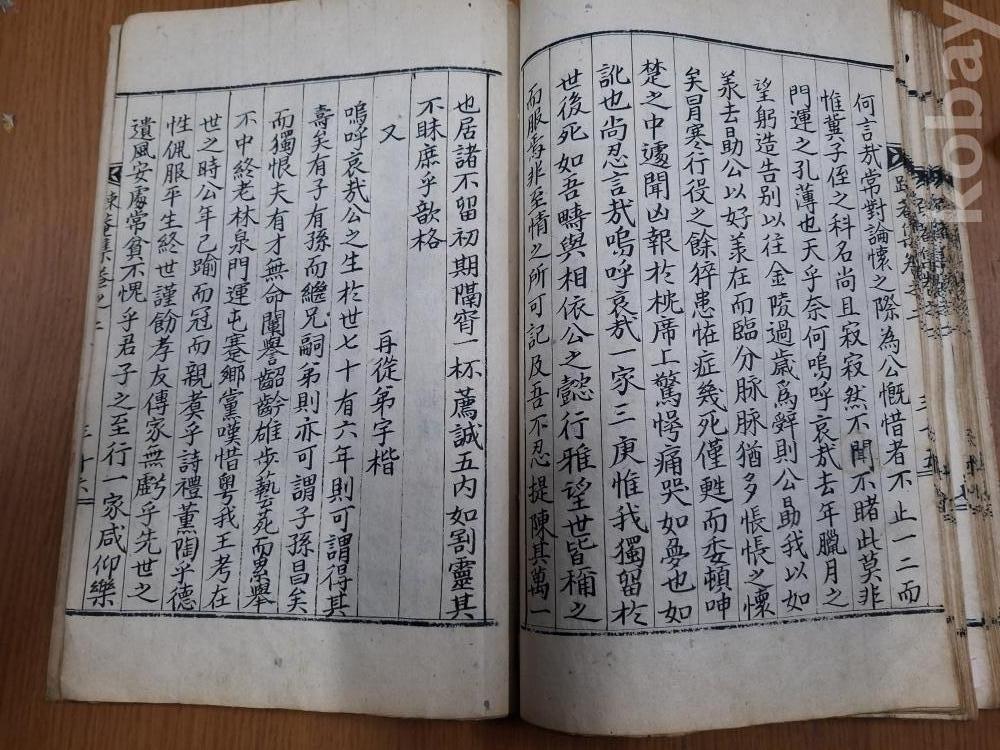 何言哉常對論懷之際為公慨惜者不止一二而
惟冀子侄之科名尚且寂寂然不聞不睹此莫非
門運之孔薄也天乎奈何嗚呼哀哉去年臘月之
望躬造告别以往金陵過歲爲辭則公勗我以如
羕去勗公以好羕在而臨分脉脉猶多悵悵之懷
矣冒寒行役之餘猝患恠症幾死僅甦而委頓呻
楚之中遽聞凶報於枕席上驚愕痛哭如夢也如
訛也尚忍言哉嗚呼哀哉一家三庚惟我獨留於
世後死如吾疇與相依公之懿行雅望世皆稱之
而服焉非至情之所可記及吾不忍提陳其萬一
也居諸不留初期隔宵一杯薦誠五内如割靈其
不昧庶乎歆格
又
再從弟字楷
嗚呼哀哉公之生於世七十有六年則可謂得其
壽矣有子有孫而繼兄嗣弟則亦可謂子孫昌矣
而獨恨夫有才無命闡譽齠齡雄步藝苑而累舉
不中終老林泉門運屯蹇鄉黨嘆惜粤我王考在
世之時公年已踰而冠而親炙乎詩禮薰陶乎德
性佩服平生終世謹飭孝友傳家無虧乎先世之
遺風安處常貧不愧乎君子之至行一家咸仰樂
集卷之二
三十六
kobay